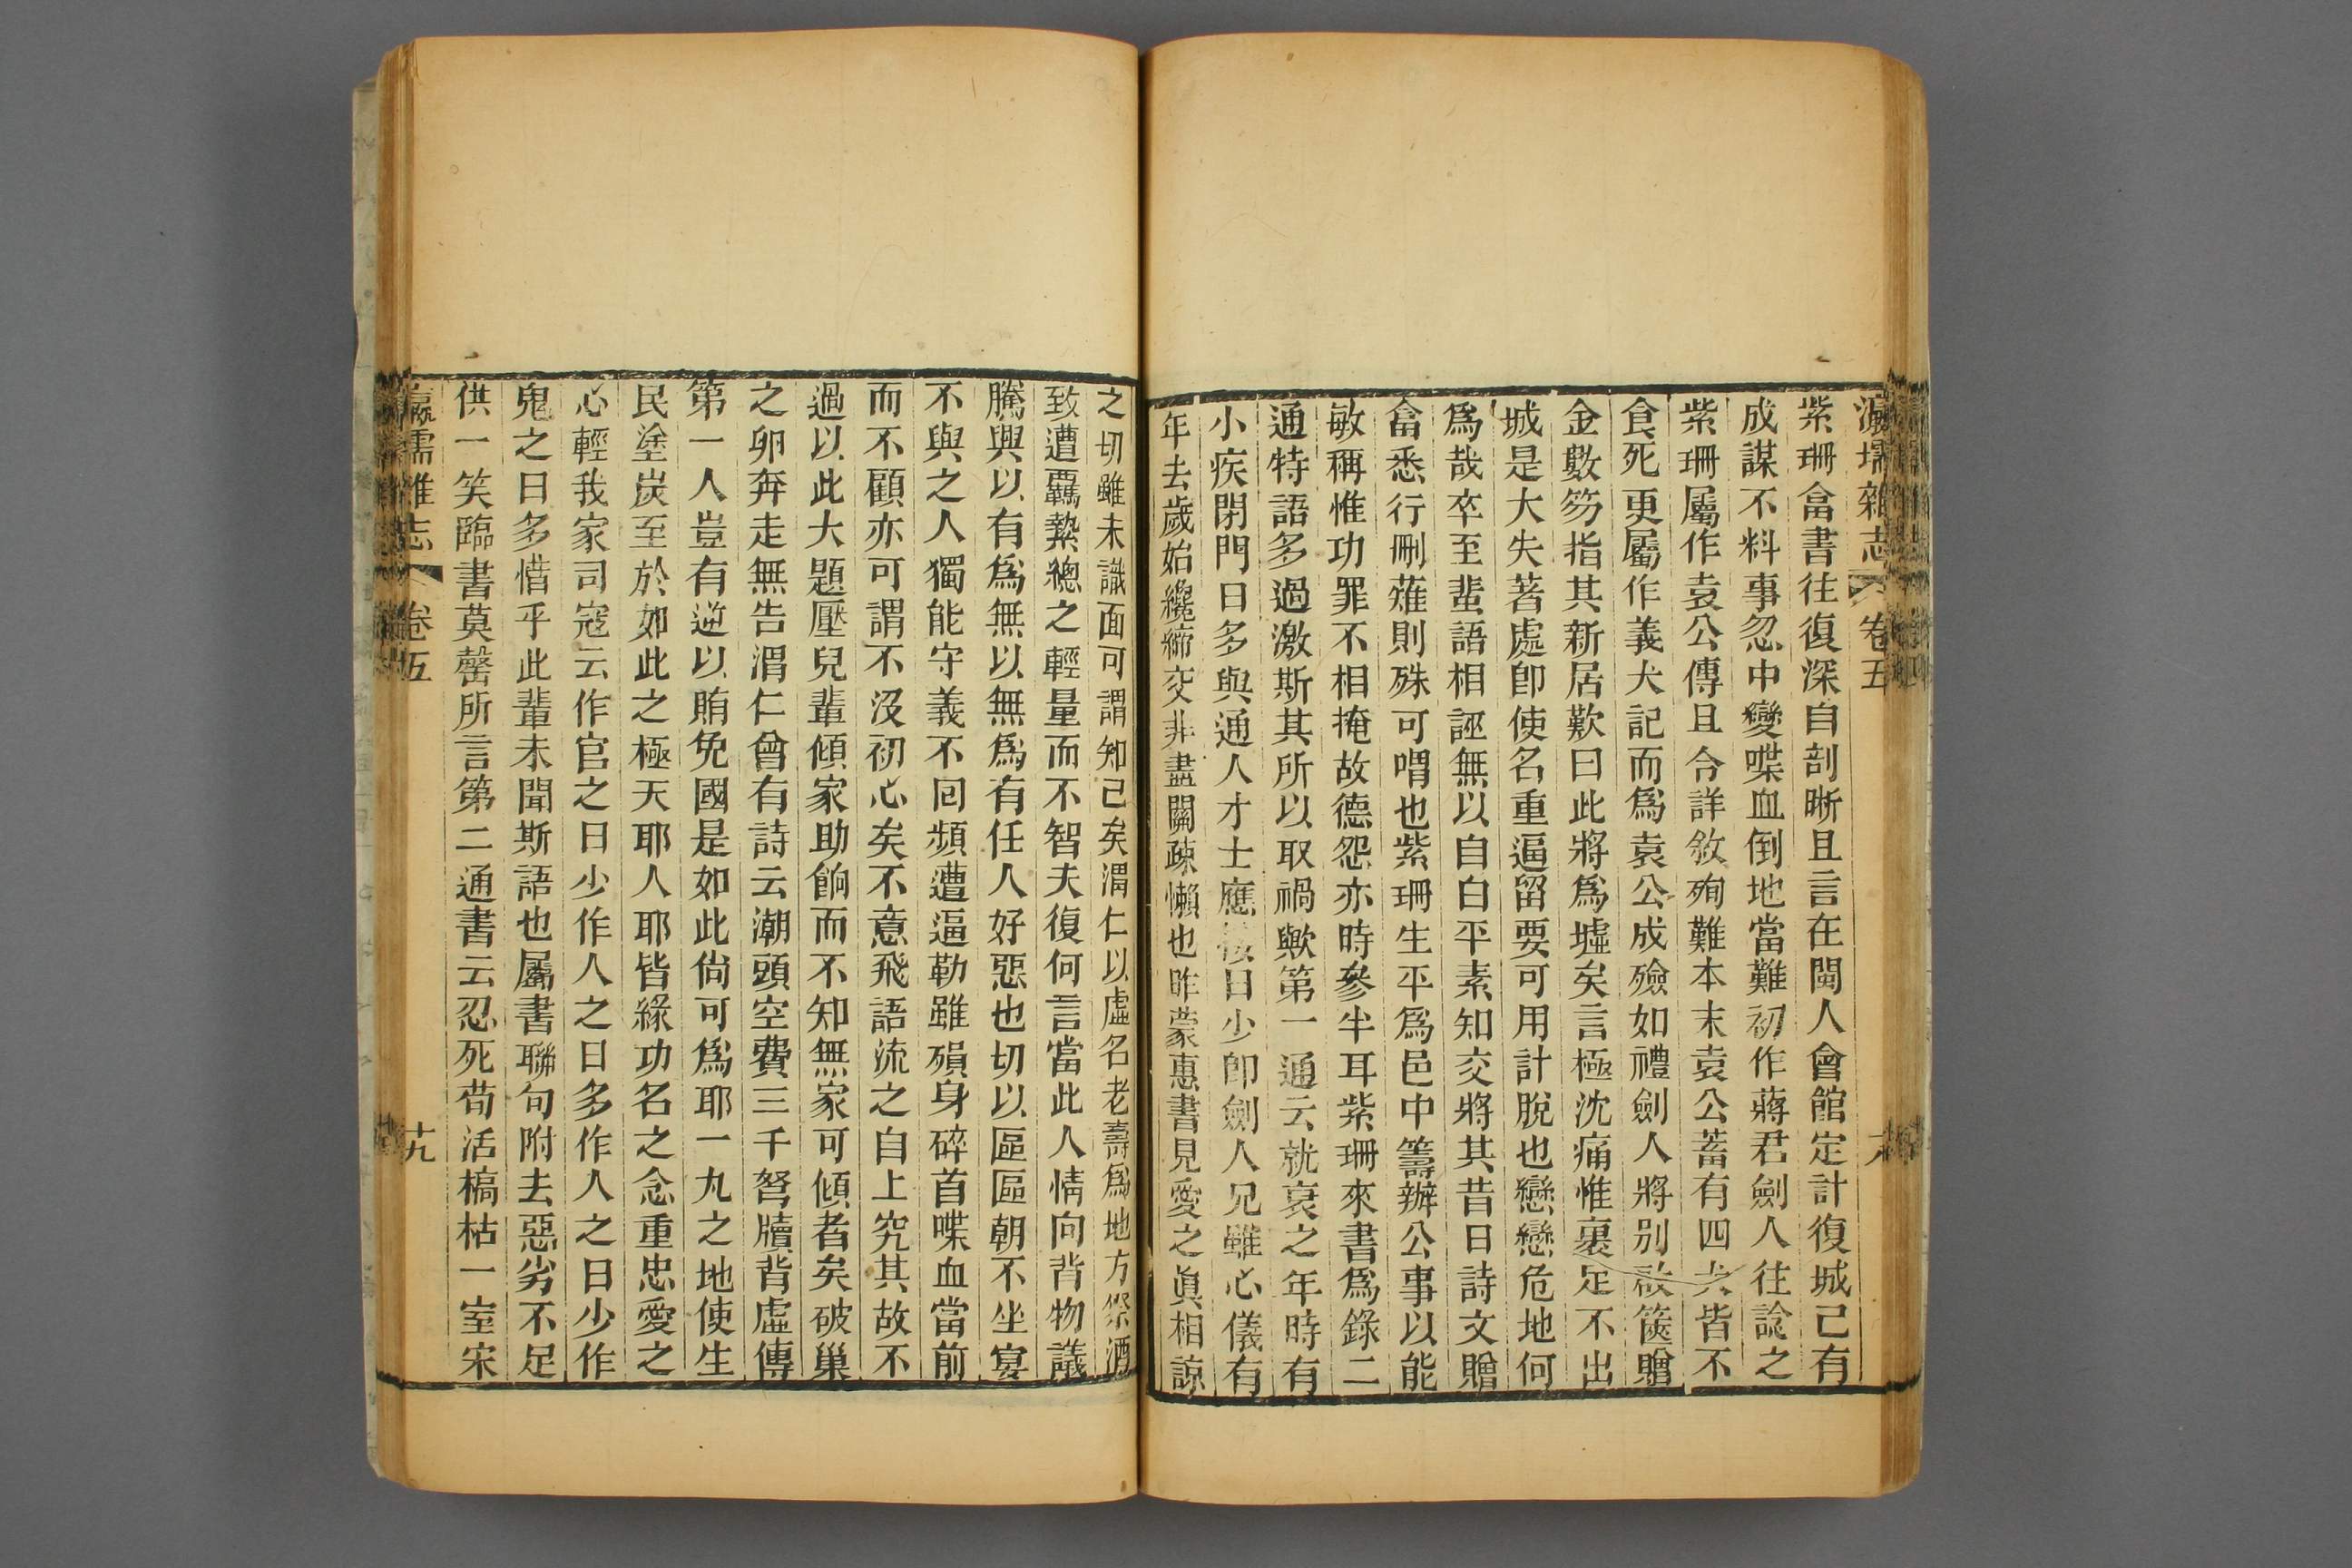 瀛壖雜志 卷五
紫珊畣書往復深自剖晰且言在閩人會館定計復城己有
成謀不料事忽中變喋血倒地當難初作蔣君劍人往諗之
紫珊屬作袁公傳且令詳敘殉難本末袁公蓄有四犬皆不
食死更屬作義犬記而爲袁公成殮如禮劍人將別啟篋贈
金數笏指其新居歎曰此將爲墟矣言極沈痛惟裹足不出
城是大失著處卽使名重逼留要可用計脫也戀戀危地何
爲哉卒至蜚語相誣無以自白平素知交將其昔日詩文贈
畣悉行刪薙則殊可喟也紫珊生平爲邑中籌辦公事以能
敏稱惟功罪不相掩故德怨亦時參半耳紫珊來書爲錄二
通特語多過激斯其所以取禍歟第一通云就衰之年時有
小疾閉門日多與通人才士應接日少卽劍人兄雖心儀有
年去歲始纔締交非盡關疎懶也昨蒙惠書見愛之眞相諒
之切雖未識面可謂知己矣渭仁以虛名老壽爲地方祭酒
致遭羈縶總之輕量而不智夫復何言當此人情向背物議
騰興以有爲無以無爲有任人好惡也切以區區朝不坐宴
不與之人獨能守義不回頻遭逼勒雖殞身碎首喋血當前
而不顧亦可謂不沒初心矣不意飛語流之自上究其故不
過以此大題壓兒輩傾家助餉而不知無家可傾者矣破巢
之卵奔走無告渭仁曾有詩云潮頭空費三千弩牘背虛傳
第一人豈有逆以賄免國是如此尙可爲耶一九之地使生
民塗炭至於如此之極天耶人耶皆緣功名之念重忠愛之
心輕我家司寇云作官之日少作人之日多作人之日少作
鬼之日多惜乎此輩未聞斯語也屬書聯句附去惡劣不足
供一笑臨書莫罄所言第二通書云忍死苟活槁枯一室宋
瀛壖雜志 卷五 十九